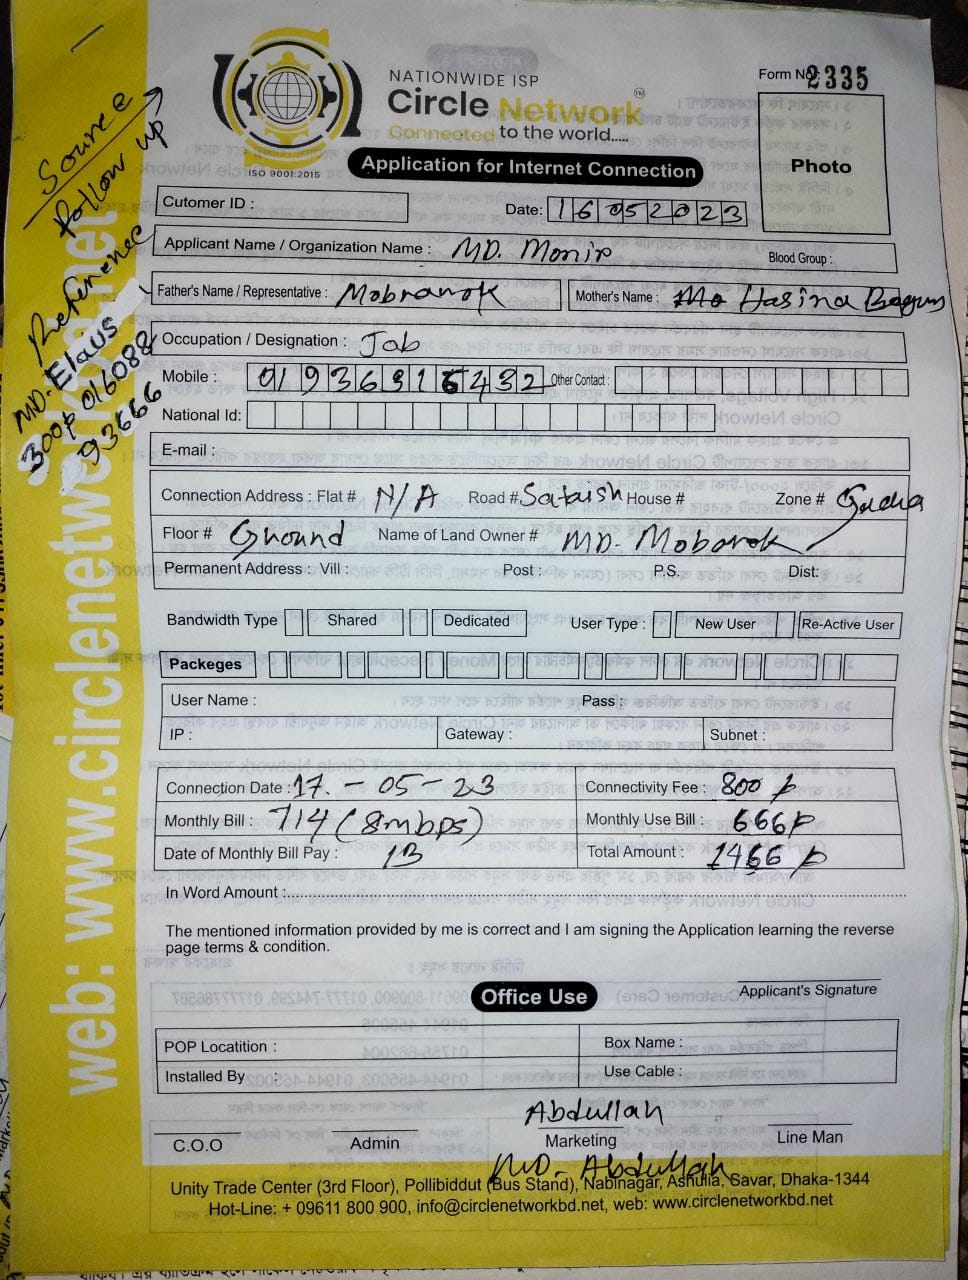 NATIONWIDE ISP
Circle Network TM
Connected to the world.....
ISO 9001:2015
Application for Internet Connection
Form No: 2335
Photo
Source
follow up
Reference
MD. Elaus
300৳ 016088
93666
web: www.circlenetworkbd.net
Cutomer ID :
Date: 16052023
Applicant Name / Organization Name : MD. Monir
Blood Group :
Father's Name / Representative : Mobranok
Mother's Name : Hasina Begum
Occupation / Designation : Job
Mobile : Other Contact :
National Id:
E-mail :
Connection Address : Flat # N/A Road # Sataish House # Zone #
Floor # Ground Name of Land Owner # MD. Mobarok
Permanent Address : Vill : Post : P.S. Dist:
Bandwidth Type Shared Dedicated User Type : New User Re-Active User
Packeges
User Name : Pass :
IP : Gateway : Subnet :
Connection Date : 17. - 05 - 23 Connectivity Fee : 800 ৳
Monthly Bill : 714 (8mbps) Monthly Use Bill : 666৳
Date of Monthly Bill Pay : 13 Total Amount : 1466 ৳
In Word Amount :
The mentioned information provided by me is correct and I am signing the Application learning the reverse
page terms & condition.
Applicant's Signature
Office Use
POP Locatition : Box Name :
Installed By : Use Cable :
Abdullah
C.O.O Admin Marketing Line Man
MD. Abdullah
Unity Trade Center (3rd Floor), Pollibiddut (Bus Stand), Nabinagar, Ashulia, Savar, Dhaka-1344
Hot-Line: + 09611 800 900, info@circlenetworkbd.net, web: www.circlenetworkbd.net